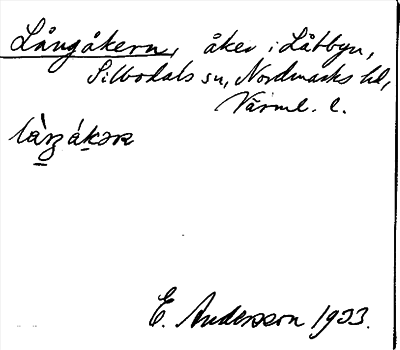 Långåkern, åker i Låbbyn,
Silbodals sn, Nordmarks hd,
Värml. l.
E. Andersson 1933.